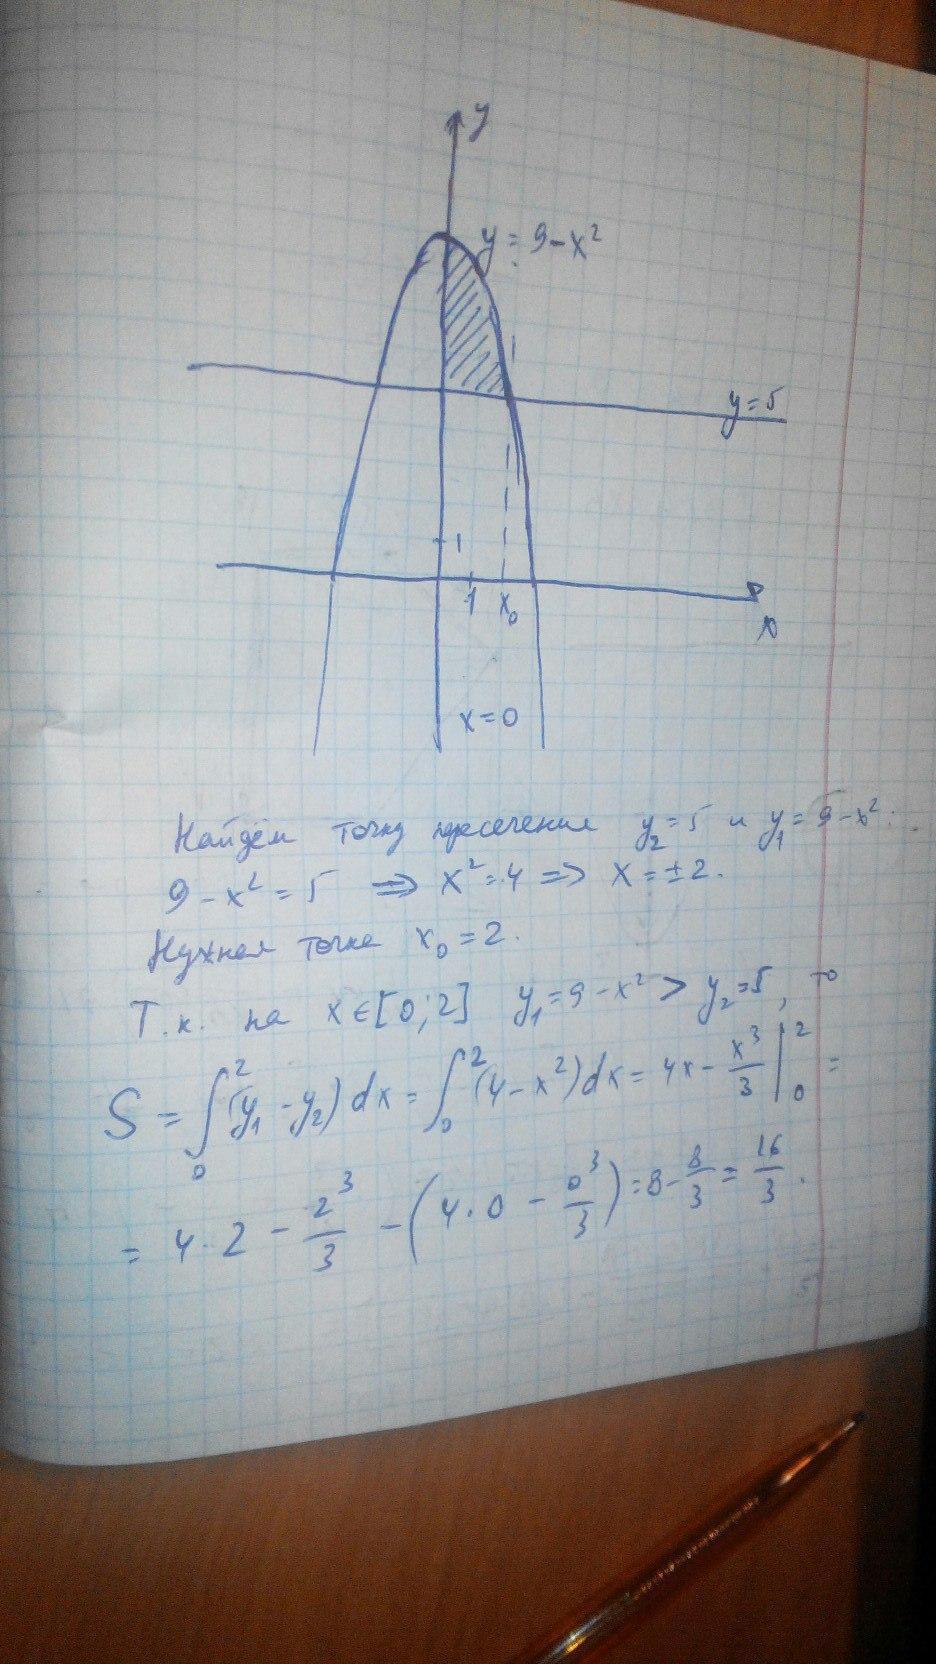 y
y = 9 - x²
y = 5
1
1 x₀
x
x = 0
Найдём точку пересечения y₂ = 5 и y₁ = 9 - x²:
9 - x² = 5 ⇒ x² = 4 ⇒ x = ±2.
Нужная точка x₀ = 2.
Т.к. на x ∈ [0; 2] y₁ = 9 - x² > y₂ = 5, то
S = ∫₀² (y₁ - y₂) dx = ∫₀² (4 - x²) dx = 4x - x³/3 |₀² =
= 4 · 2 - 2³/3 - (4 · 0 - 0³/3) = 8 - 8/3 = 16/3.